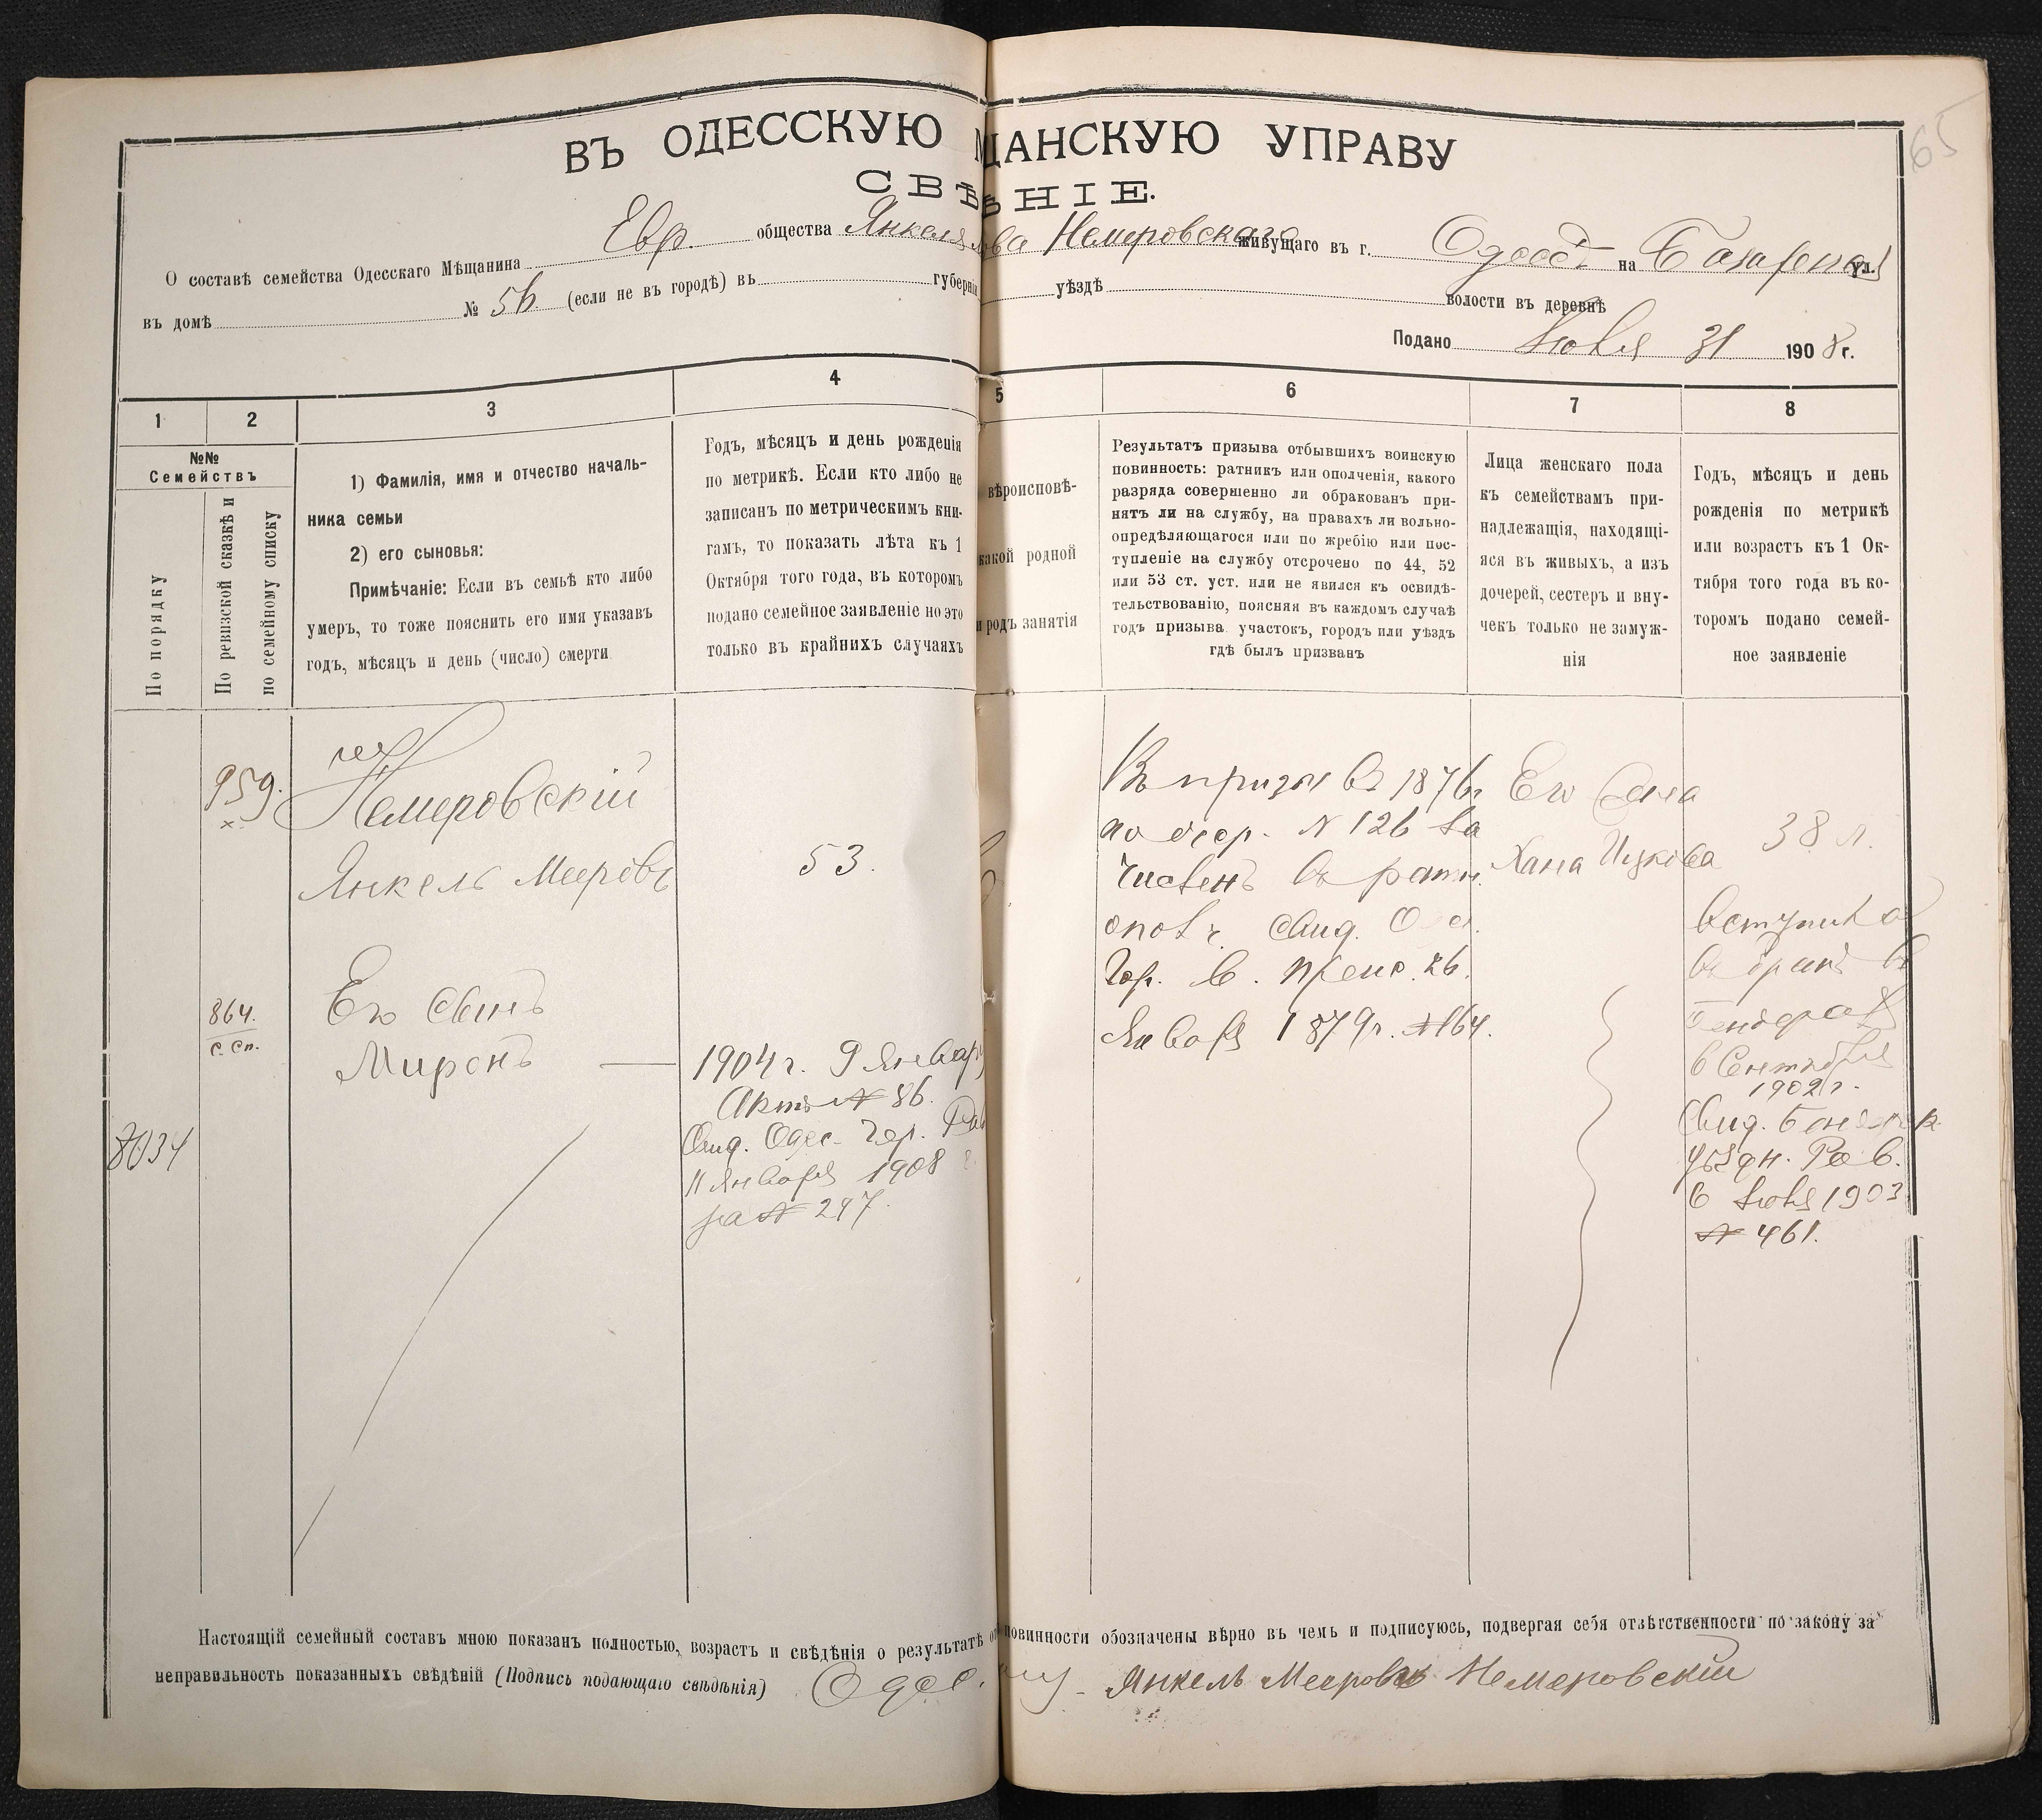 65
ВЪ ОДЕССКУЮ ЩАНСКУЮ УПРАВУ
СВѢ НІЕ.
О составѣ семейства Одесскаго Мѣщанина Евр. общества Янкеля Немеровскаго живущаго въ г. на ул.
въ домѣ № 56 (если не въ городѣ) въ губерніи уѣздѣ волости въ деревнѣ
Подано Іюля 31 1908 г.
1 2 3 4 5 6 7 8
№№
Семействъ
По порядку
По ревизской сказкѣ и
по семейному списку
1) Фамилія, имя и отчество началь-
ника семьи
2) его сыновья:
Примѣчаніе: Если въ семьѣ кто либо
умеръ, то тоже пояснить его имя указавъ
годъ, мѣсяцъ и день (число) смерти
Годъ, мѣсяцъ и день рожденія
по метрикѣ. Если кто либо не
записанъ по метрическимъ кни-
гамъ, то показать лѣта къ 1
Октября того года, въ которомъ
подано семейное заявленіе но это
только въ крайнихъ случаяхъ
вѣроисповѣ-
какой родной
и родъ занятія
Результатъ призыва отбывшихъ воинскую
повинность: ратникъ или ополченія, какого
разряда совершенно ли обракованъ при-
нятъ ли на службу, на правахъ ли вольно-
опредѣляющагося или по жребію или пос-
тупленіе на службу отсрочено по 44, 52
или 53 ст. уст. или не явился къ освидѣ-
тельствованію, поясняя въ каждомъ случаѣ
годъ призыва участокъ, городъ или уѣздъ
гдѣ былъ призванъ
Лица женскаго пола
къ семействамъ при-
надлежащія, находящі-
яся въ живыхъ, а изъ
дочерей, сестеръ и вну-
чекъ только не замуж-
нія
Годъ, мѣсяцъ и день
рожденія по метрикѣ
или возрастъ къ 1 Ок-
тября того года въ ко-
торомъ подано семей-
ное заявленіе
959.
х.
Немеровскій
Янкель Мееровъ
53.
864.
с. сп.
Его сынъ
Миронъ
8034
1904 г. 9 Январ
Актъ № 86.
Свид. Одес. Гор. Рав
11 Января 1908
за № 297.
В призыв 1876 г
по жер. № 126 за
численъ въ ратн.
опол ч. Свид. Од
Гор. В. Прис. 26.
Января 1879 г. № 164.
Его жена
Хана Ицкова
38 л.
вступила
въ бракъ въ
Бендерах
6 Сентября
1902 г.
Свид. Бендер
уѣздн. Рав.
6 Іюля 1903
№ 461.
Настоящій семейный составъ мною показанъ полностью, возрастъ и свѣдѣнія о результатѣ от повинности обозначены вѣрно въ чемъ и подписуюсь, подвергая себя отвѣтственности по закону за
неправильность показанныхъ свѣдѣній (Подпись подающаго свѣдѣнія) Одес. Янкель Мееровъ Немеровскій